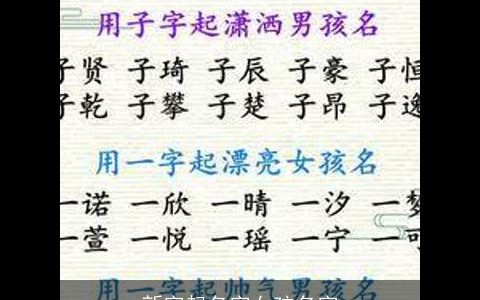 用子字起潇洒男孩名
子贤 子琦 子辰 子豪 子恒
子乾 子攀 子楚 子昂 子逸
用一字起漂亮女孩名
一诺 一欣 一晴 一汐 一梦
一萱 一悦 一瑶 一宁 一可
用一字起帅气男孩名